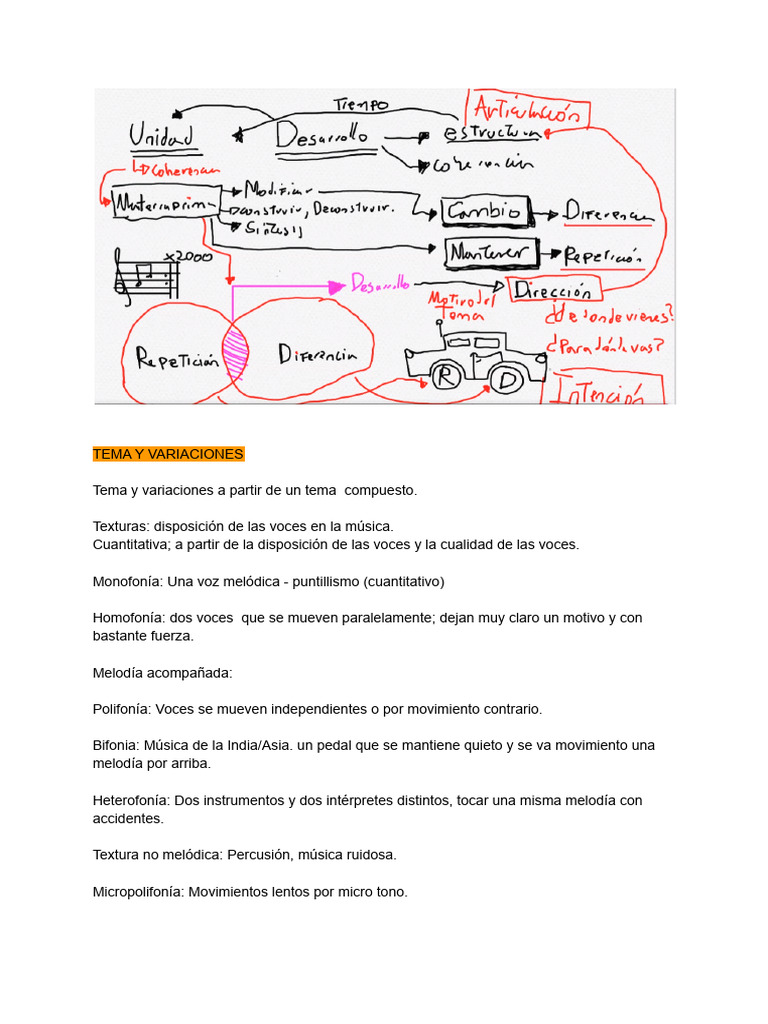 Tiempo
Articulación
Unidad
Desarrollo
estructura
Coherencia
Materia prima
Modificar
construir, Deconstruir.
Síntesis
Cambio
Diferencia
Mantener
Repetición
x2000
Desarrollo
Dirección
Motivo del
Tema
¿De donde vienes?
¿Para dónde vas?
Repetición
Diferencia
R
D
Intención
TEMA Y VARIACIONES
Tema y variaciones a partir de un tema  compuesto.
Texturas: disposición de las voces en la música.
Cuantitativa; a partir de la disposición de las voces y la cualidad de las voces.
Monofonía: Una voz melódica - puntillismo (cuantitativo)
Homofonía: dos voces  que se mueven paralelamente; dejan muy claro un motivo y con
bastante fuerza.
Melodía acompañada:
Polifonía: Voces se mueven independientes o por movimiento contrario.
Bifonia: Música de la India/Asia. un pedal que se mantiene quieto y se va movimiento una
melodía por arriba.
Heterofonía: Dos instrumentos y dos intérpretes distintos, tocar una misma melodía con
accidentes.
Textura no melódica: Percusión, música ruidosa.
Micropolifonía: Movimientos lentos por micro tono.